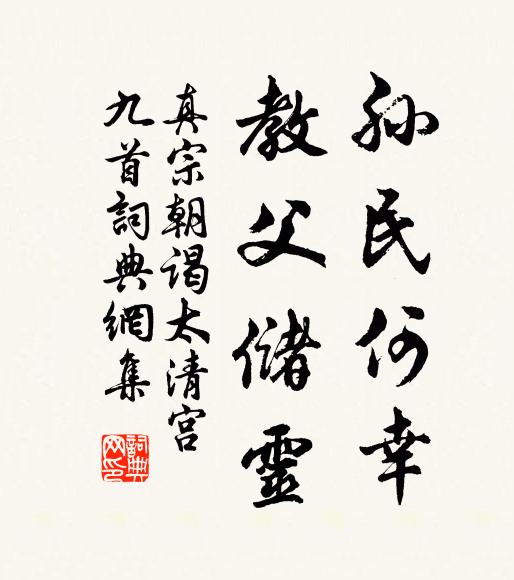 孙民何幸
教父儲靈
真宗朝谒太清宫
九首詞典網集
詞典網印